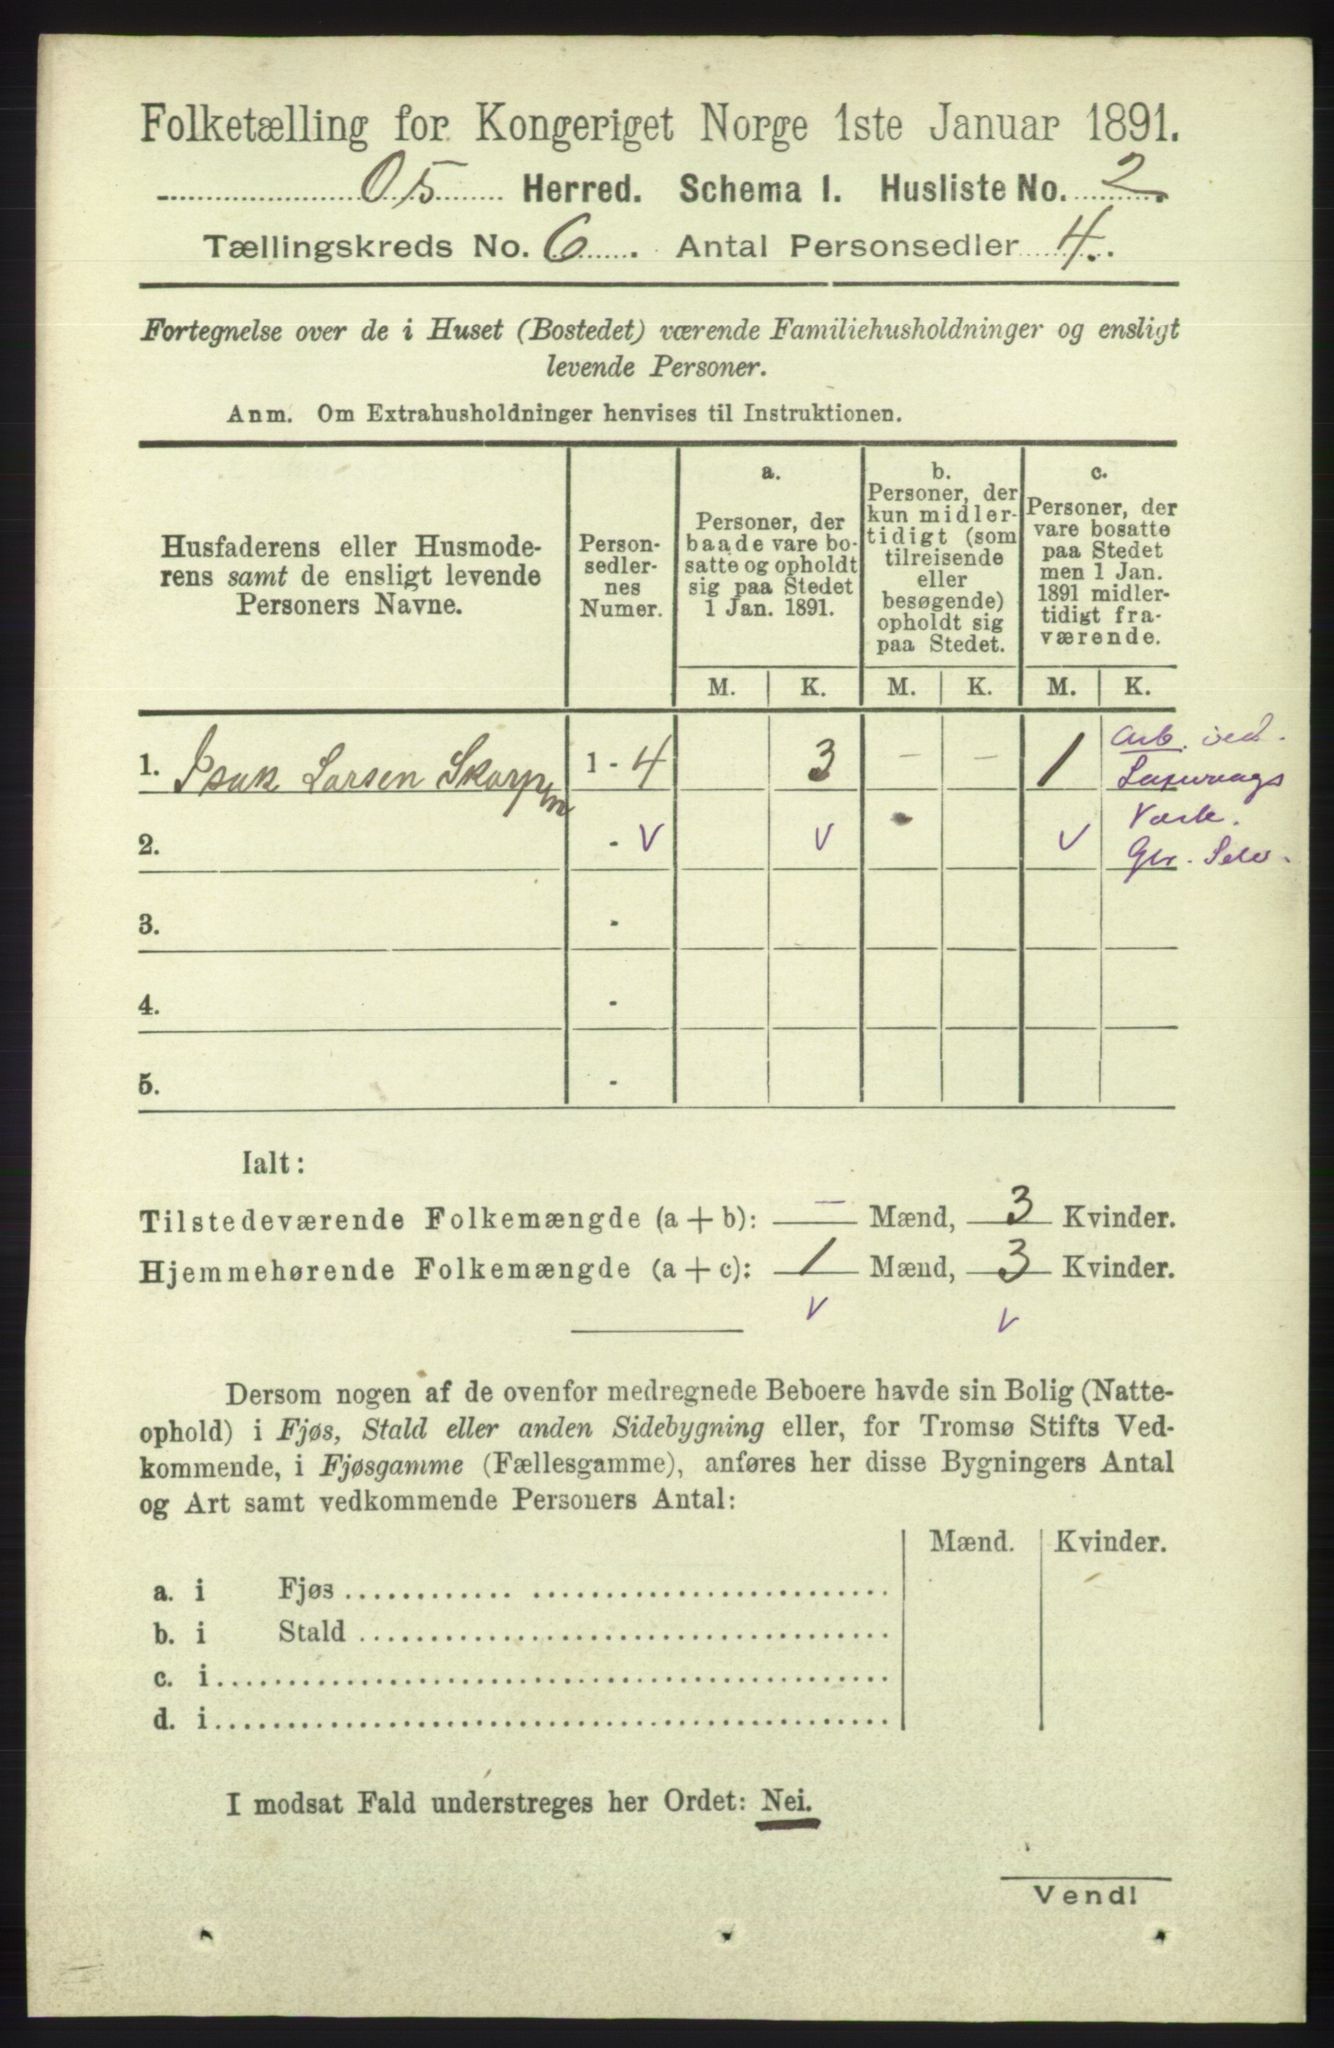 Folketælling for Kongeriget Norge 1ste Januar 1891.
Os Herred. Schema I. Husliste No. 2.
Tællingskreds No. 6. Antal Personsedler 4.
Fortegnelse over de i Huset (Bostedet) værende Familiehusholdninger og ensligt
levende Personer.
Anm. Om Extrahusholdninger henvises til Instruktionen.
Husfaderens eller Husmode-
rens samt de ensligt levende
Personers Navne.
Person-
sedler-
nes
Numer.
a.
Personer, der
baade vare bo-
satte og opholdt
sig paa Stedet
1 Jan. 1891.
b.
Personer, der
kun midler-
tidigt (som
tilreisende
eller
besøgende)
opholdt sig
paa Stedet.
c.
Personer, der
vare bosatte
paa Stedet
men 1 Jan.
1891 midler-
tidigt fra-
værende.
M. K. M. K. M. K.
1. Isak Larsen Skorpen 1 - 4 3 — — 1 Arb. ved
Værk.
2. - v v v
3. -
4. -
5. -
Ialt:
Tilstedeværende Folkemængde (a + b): — Mænd, 3 Kvinder.
Hjemmehørende Folkemængde (a + c): 1 Mænd, 3 Kvinder.
v v
Dersom nogen af de ovenfor medregnede Beboere havde sin Bolig (Natte-
ophold) i Fjøs, Stald eller anden Sidebygning eller, for Tromsø Stifts Ved-
kommende, i Fjøsgamme (Fællesgamme), anføres her disse Bygningers Antal
og Art samt vedkommende Personers Antal:
Mænd. Kvinder.
a. i Fjøs
b. i Stald
c. i
d. i
I modsat Fald understreges her Ordet: Nei.
Vend!